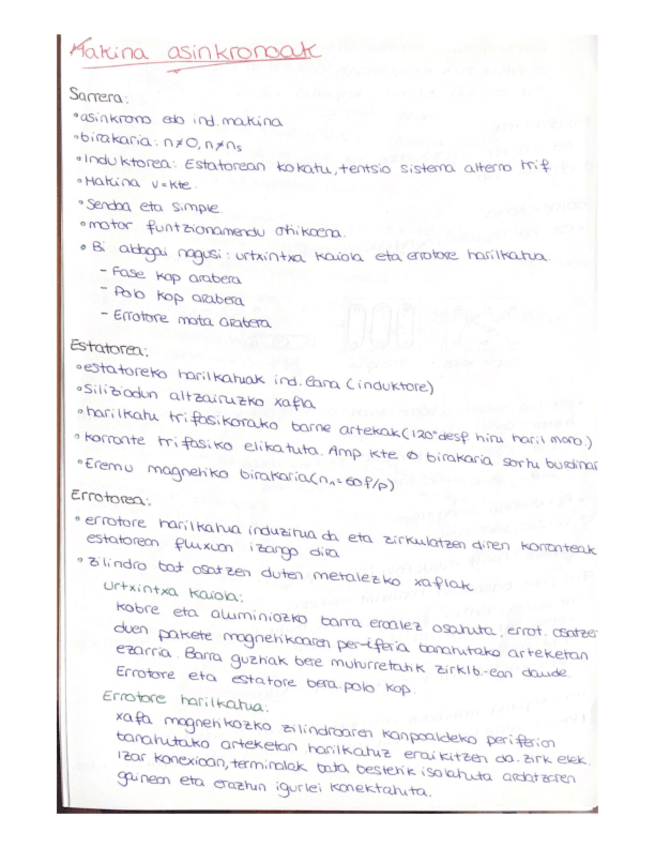 Makina asinkronoak
Sarrera:
• asinkrono edo ind. makina
• birakaria: n≠0, n≠ns
• Induktorea: Estatorean kokatu, tentsio sistema alterno trif.
• Makina v=kte.
• Sendoa eta simple
• motor funtzionamendu ohikoena.
• Bi aldagai nagusi: urtxintxa kaiola eta errotore harilkatua.
- Fase kop arabera
- Polo kop arabera
- Errotore mota arabera
Estatorea:
• estatoreko harilkatuak ind. lana (induktore)
• Siliziodun altzairuzko xafla
• harilkatu trifasikorako barne artekak (120° desf hiru haril mono.)
• korronte trifasiko elikatuta. Amp kte Φ birakaria sortu burdinar
• Eremu magnetiko birakaria (n₁=60f/p)
Errotorea:
• errotore harilkatua induzitua da eta zirkulatzen diren korronteak
estatorean fluxuan izango dira
• zilindro bat osatzen duten metalezko xaflak
Urtxintxa kaiola:
kobre eta aluminiozko barra eroalez osatuta, errot. osatzen
duen pakete magnetikoaren periferia banatutako arteketan
ezarria. Barra guztiak bere muturretatik zirklb.-ean daude.
Errotore eta estatore bera polo kop.
Errotore harilkatua:
xafa magnetikozko zilindroaren kanpoaldeko periferian
banatutako arteketan harilkatuz eraikitzen da. zirk elek.
Izar konexioan, terminalak bata bestetik isolatuta ardatzaren
gainean eta eraztun igurlei konektatuta.